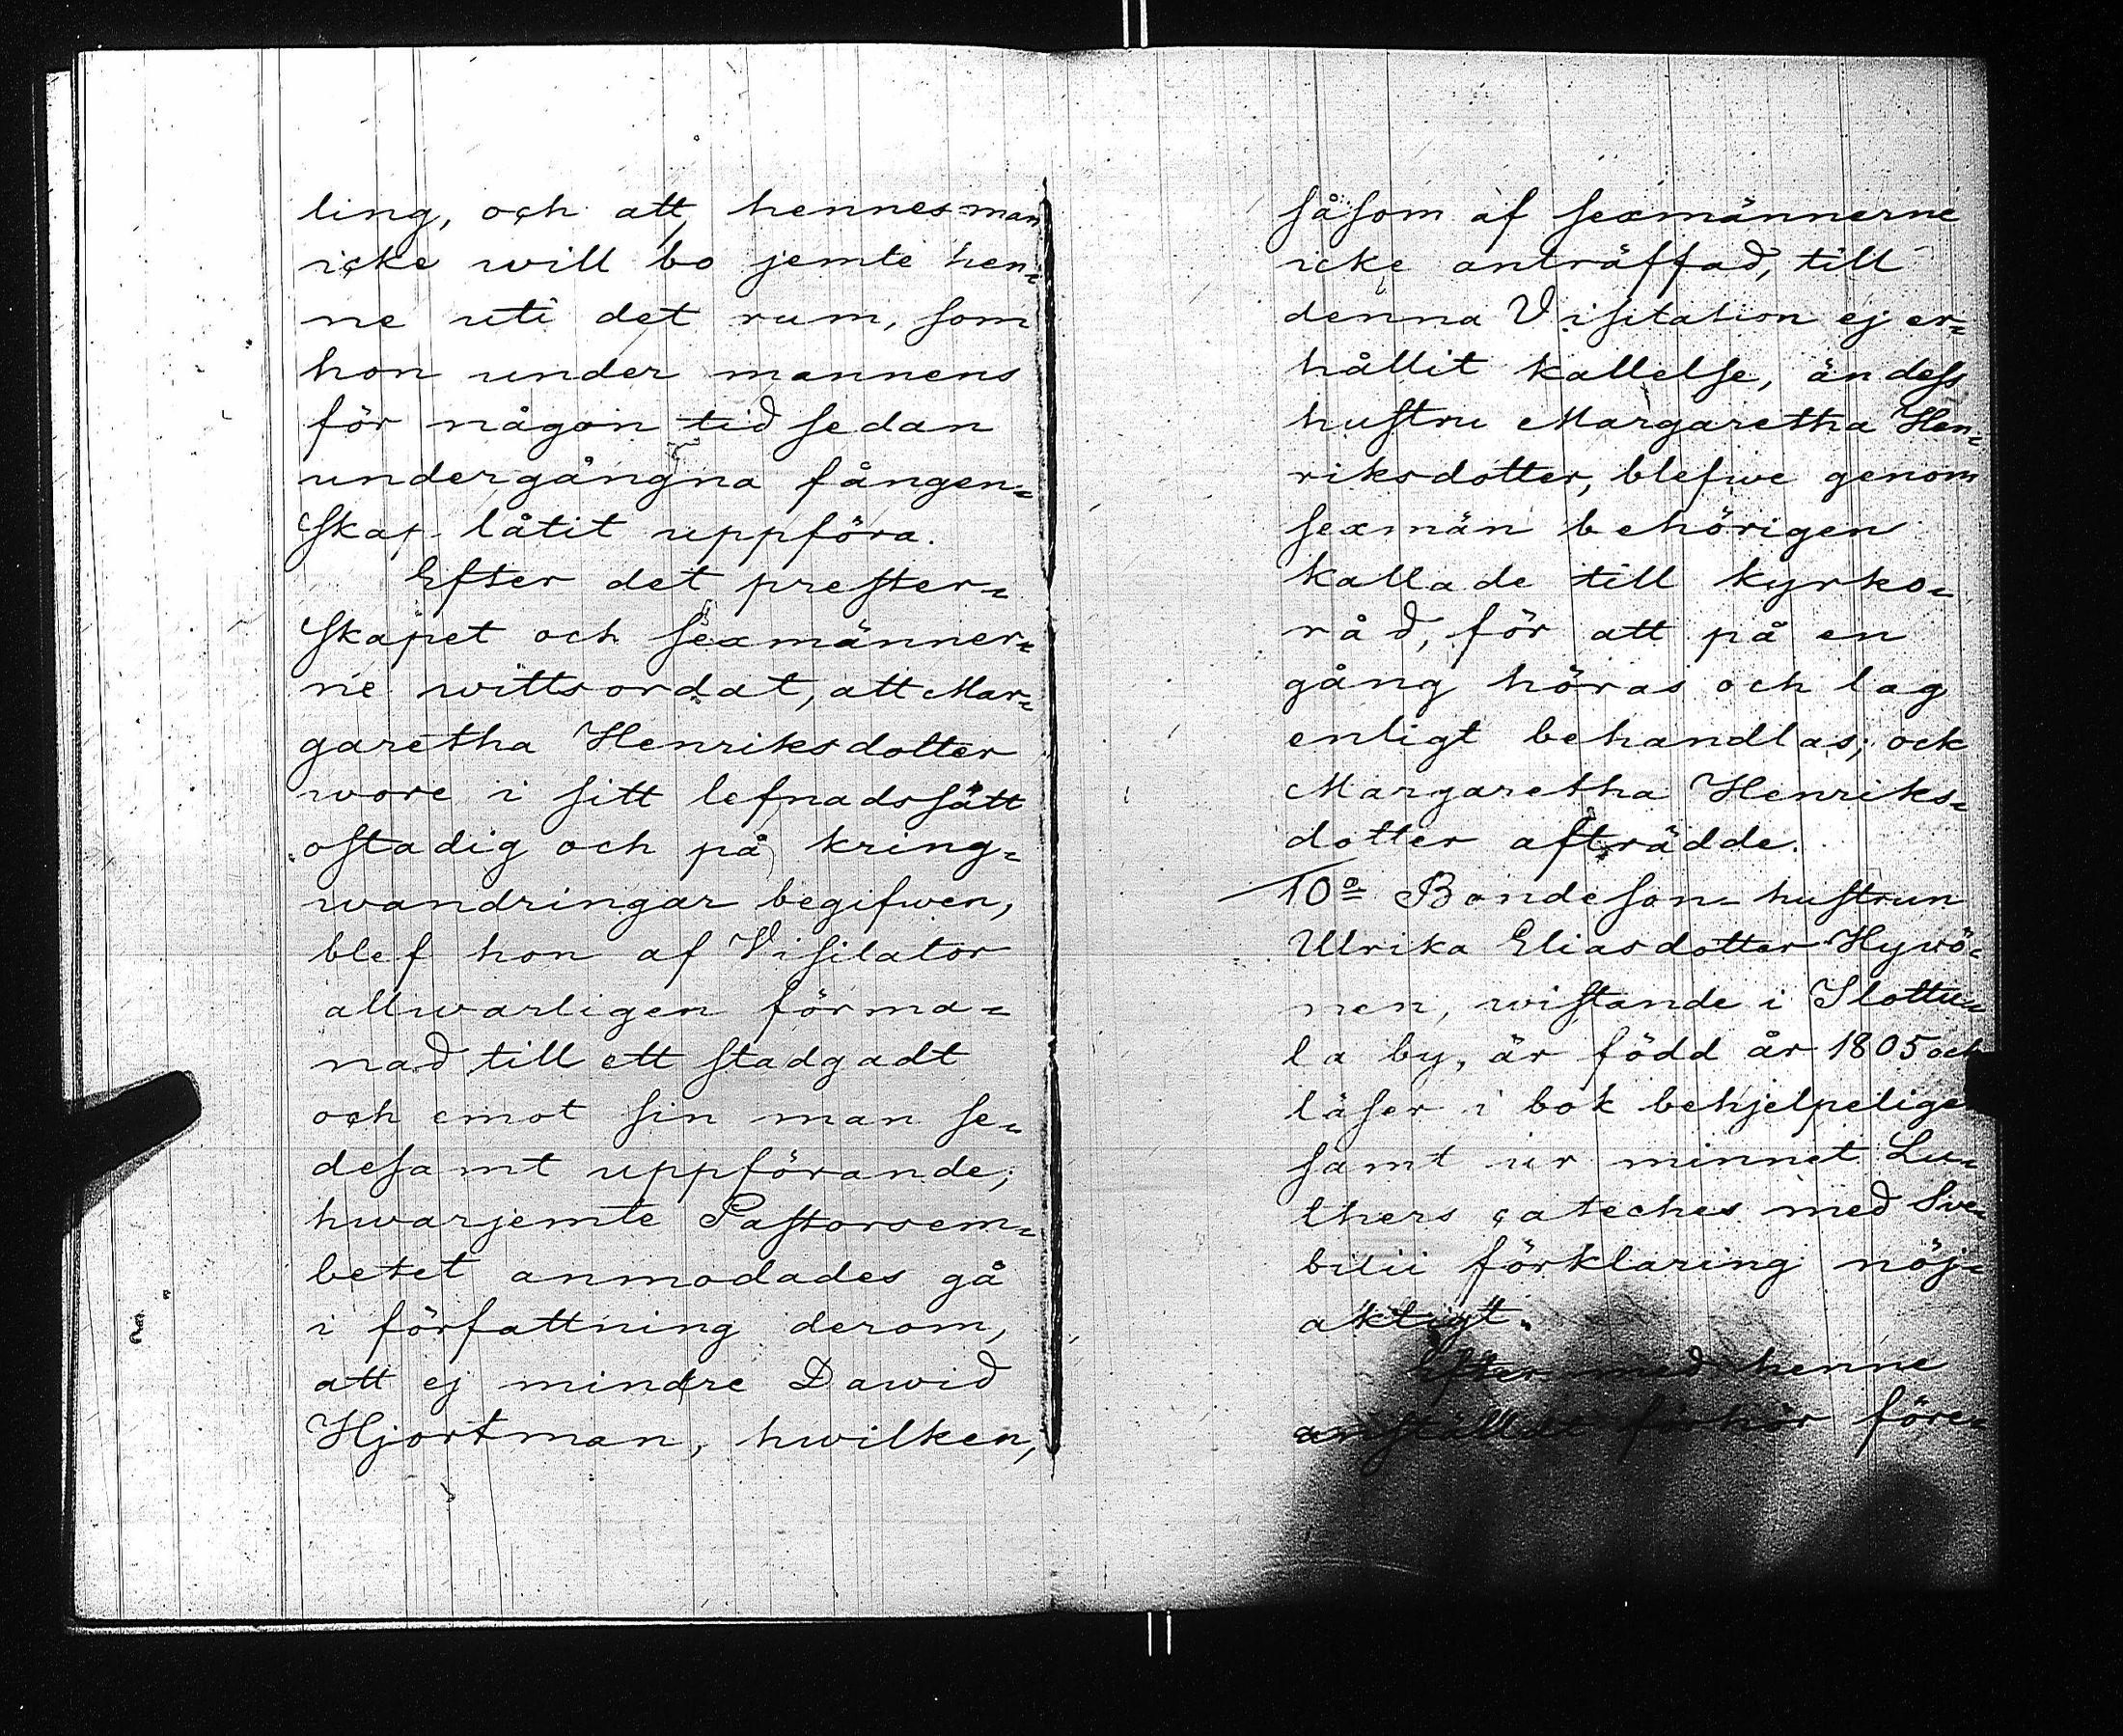 ling, och att hennes man
icke will bo jemte hen=
ne uti det rum, som
hon under mannens
för någon tid sedan
undergångna fången=
skap låtit uppföra.
Efter det prester=
skapet och sexmänner=
ne wittsordat, att Mar=
garetha Henriksdotter
wore i sitt lefnadssätt
ostadig och på kring=
wandringar begifwen,
blef hon af Visitator
allwarligen förma=
nad till ett stadgadt
och emot sin man se=
desamt uppförande;
hwarjemte Pastorsem=
betet anmodades gå
i författning derom,
att ej mindre Dawid
Hjortman, hwilken,
såsom af sexmännerne
icke anträffad, till
denna Visitation ej er=
hållit kallelse, än dess
hustru Margaretha Hen=
riksdotter, blefwe genom
sexmän behörigen
kallade till kyrko=
råd, för att på en
gång höras och lag
enligt behandlas; ock
Margaretha Henriks=
dotter afträdde.
10º Bondeson= hustrun
Ulrika Eliasdotter Hywö=
nen, wistande i Slottu=
la by, är född år 1805 och
läser i bok behjelpeligen
samt ur minnet Lu=
thers cateches med Sve=
bilii förklaring nöj=
aktigt.
Efter med henne
anställdt förhör före=